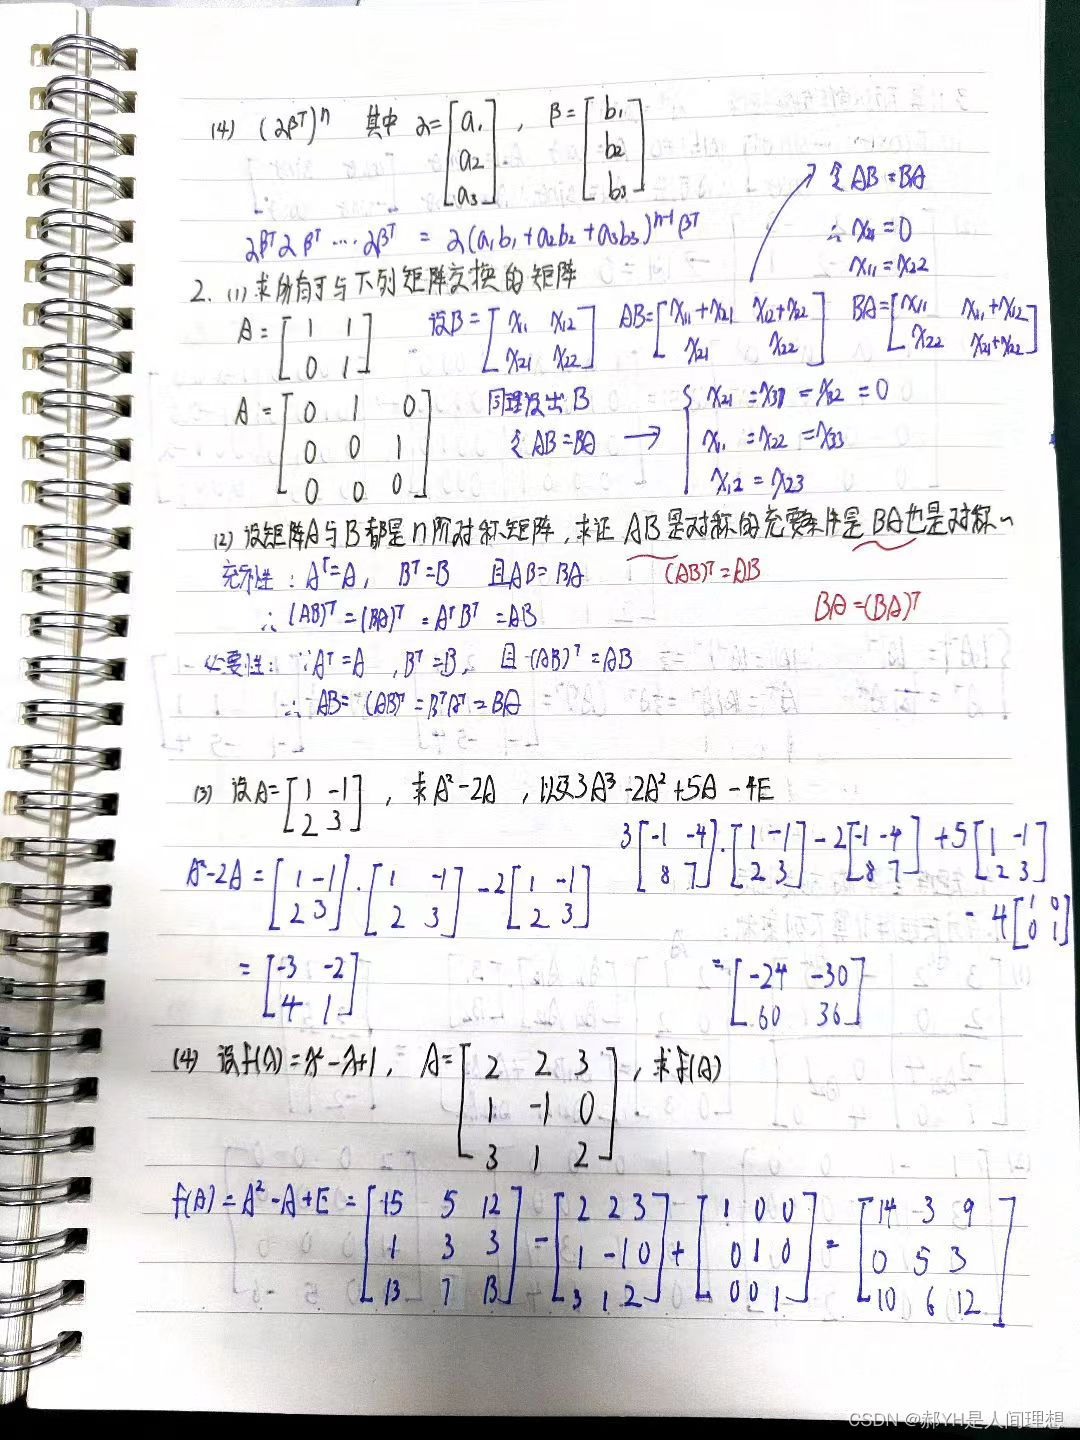 (4) (αβᵀ)ⁿ 其中 α=[a₁ a₂ a₃], β=[b₁ b₂ b₃]
αβᵀαβᵀ····αβᵀ = α(a₁b₁+a₂b₂+a₃b₃)ⁿ⁻¹βᵀ
令AB=BA
∴ x₂₁=0
x₁₁=x₂₂
2. (1) 求所有与下列矩阵交换的矩阵
A=[1 1; 0 1] 设B=[x₁ x₁₂; x₂₁ x₂₂] AB=[x₁₁+x₂₁ x₁₂+x₂₂; x₂₁ x₂₂] BA=[x₁₁ x₁₁+x₁₂; x₂₂ x₂₁+x₂₂]
A=[0 1 0; 0 0 1; 0 0 0] 同理设出B
令AB=BA →
x₂₁=x₃₁=x₃₂=0
x₁₁=x₂₂=x₃₃
x₁₂=x₂₃
(2) 设矩阵A与B都是n阶对称矩阵,求证 AB是对称的充要条件是BA也是对称~
充分性: Aᵀ=A, Bᵀ=B 且AB=BA (AB)ᵀ=AB
∴ (AB)ᵀ=(BA)ᵀ=AᵀBᵀ=AB BA=(BA)ᵀ
必要性: ∵Aᵀ=A, Bᵀ=B, 且(AB)ᵀ=AB
∴ AB=(AB)ᵀ=BᵀAᵀ=BA
(3) 设A=[1 -1; 2 3], 求A²-2A, 以及3A³-2A²+5A-4E
A²-2A=[1 -1; 2 3]·[1 -1; 2 3]-2[1 -1; 2 3]
=[-3 -2; 4 1]
3[-1 -4; 8 7]·[1 -1; 2 3]-2[-1 -4; 8 7]+5[1 -1; 2 3]
-4[1 0; 0 1]
=[-24 -30; 60 36]
(4) 设f(λ)=λ²-λ+1, A=[2 2 3; 1 -1 0; 3 1 2], 求f(A)
f(A)=A²-A+E=[15 5 12; 1 3 3; 13 7 13]-[2 2 3; 1 -1 0; 3 1 2]+[1 0 0; 0 1 0; 0 0 1]=[14 3 9; 0 5 3; 10 6 12]
CSDN @郝YH是人间理想